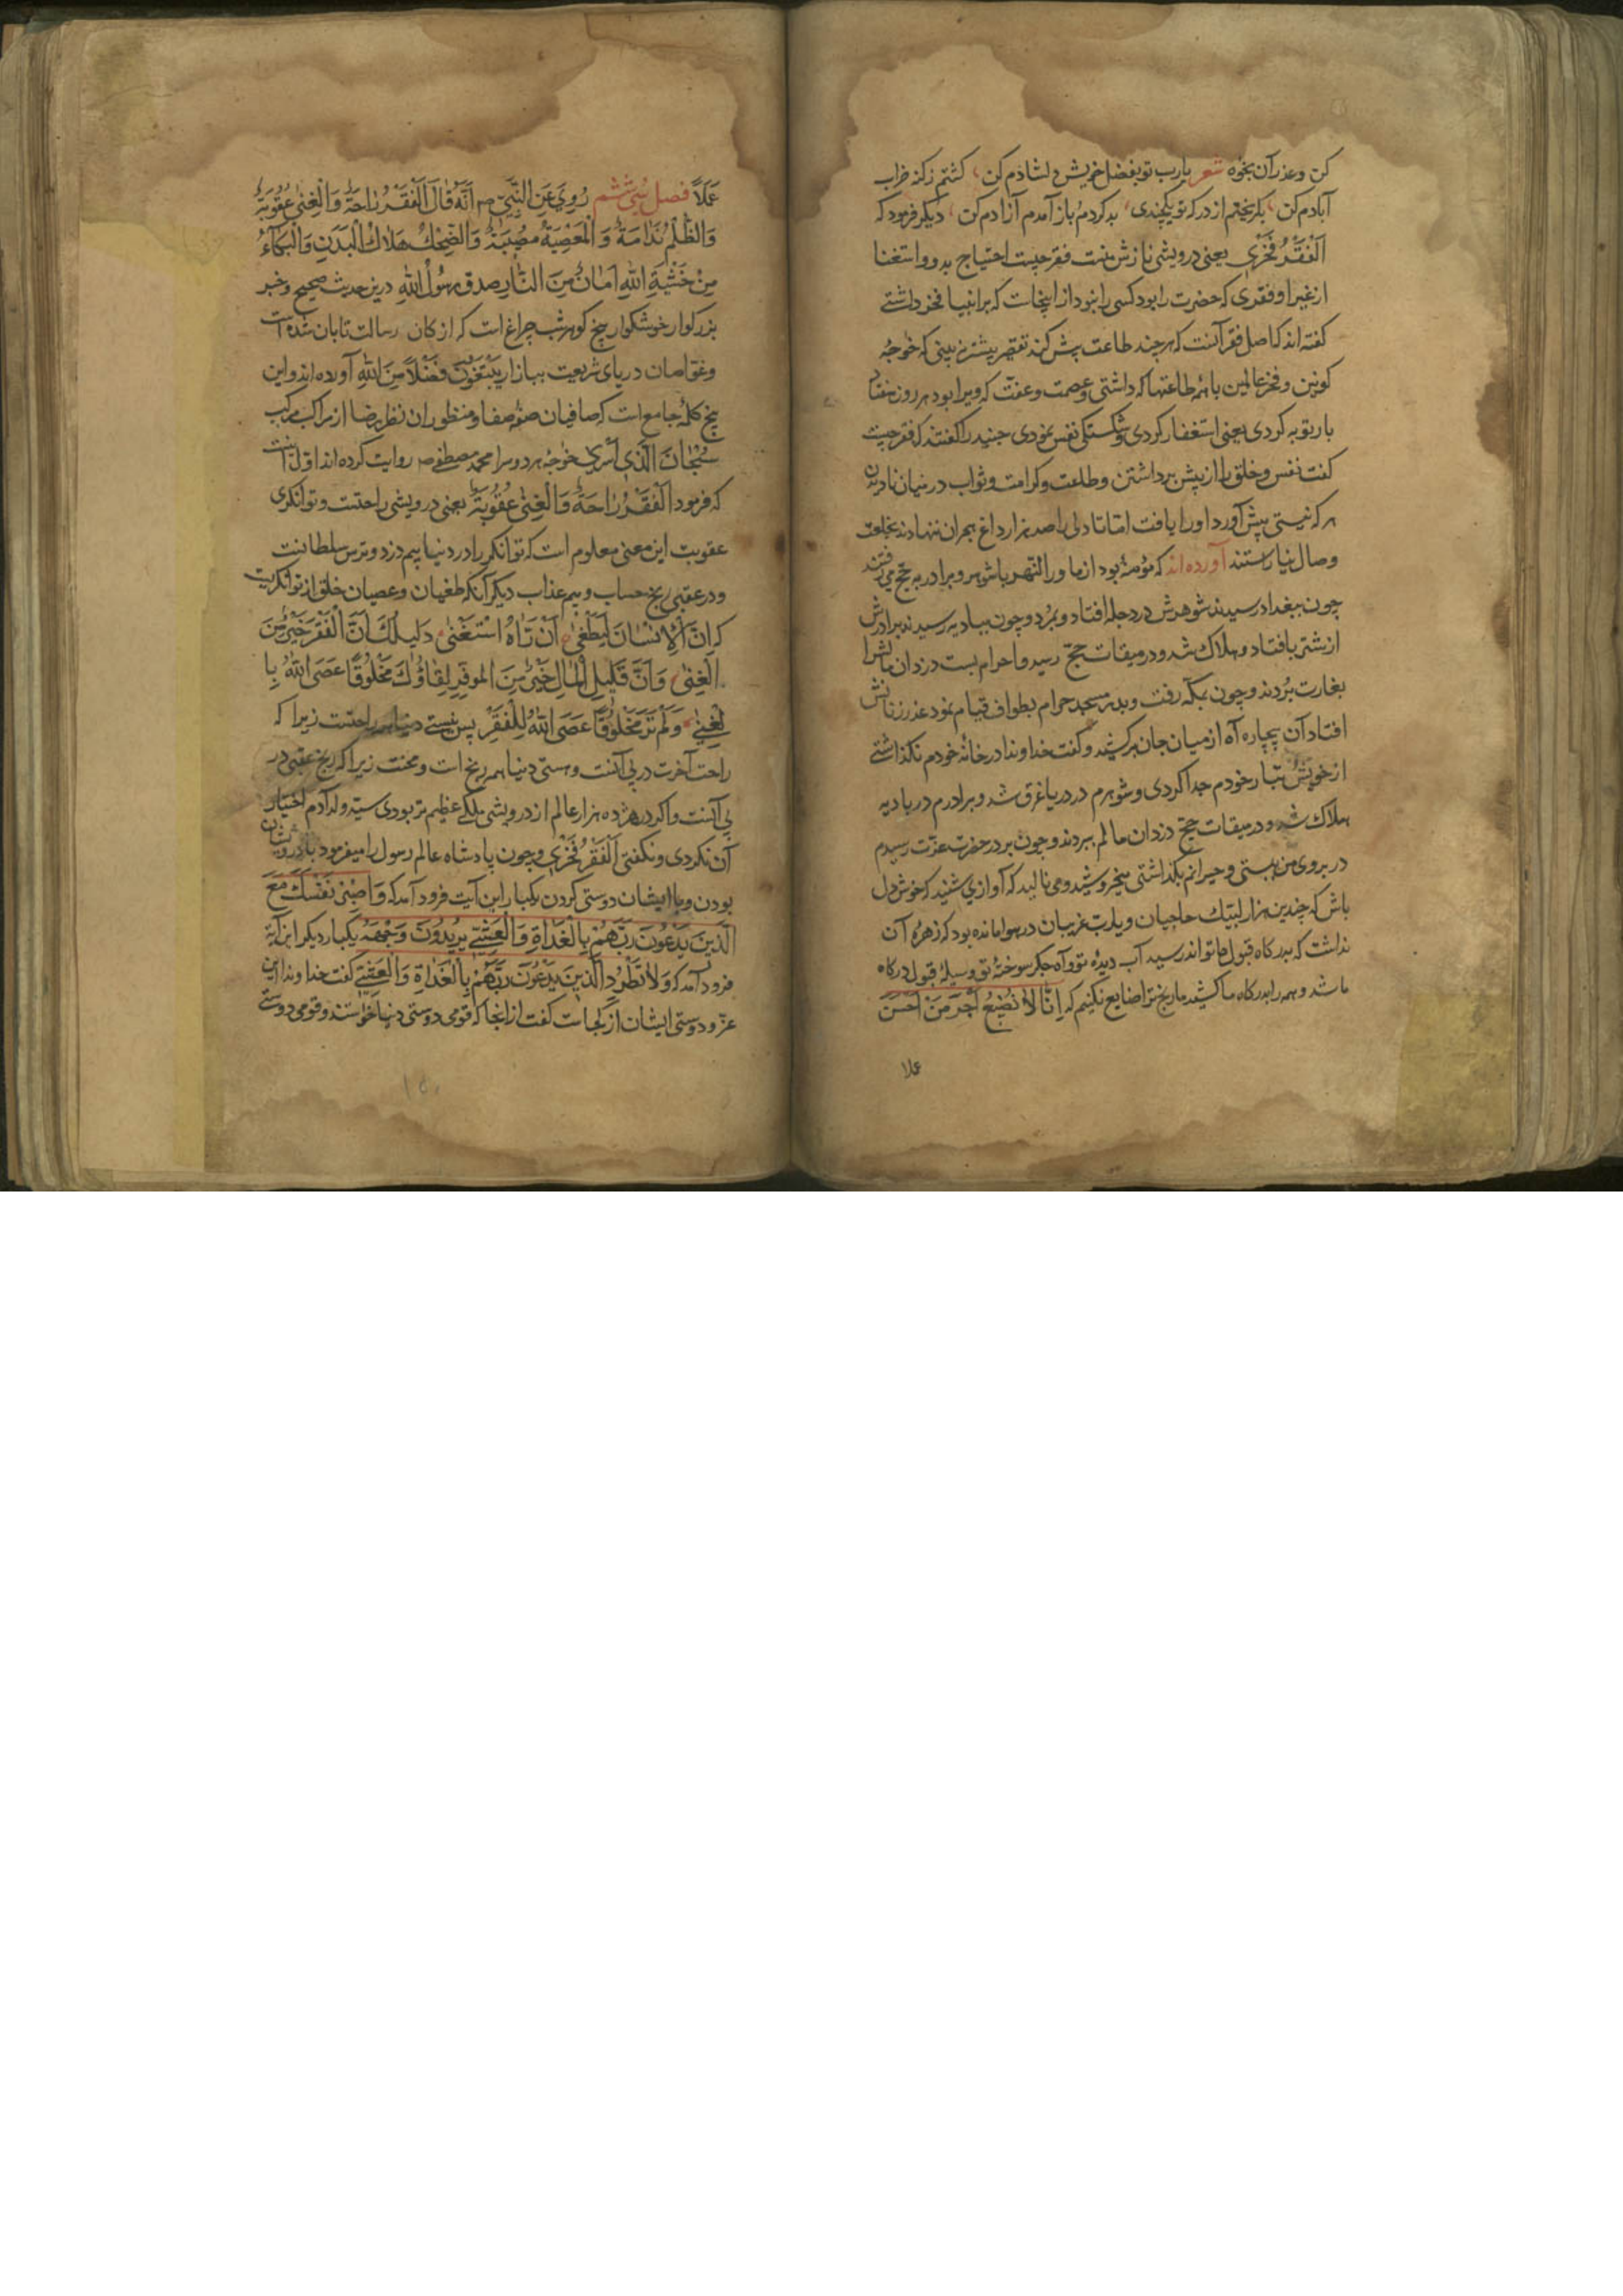 کن وعذر آن بخواه شعر یارب تو بفضل خویش دلشادم کن کشتم زکنه خراب
آبادم کن بکریختم از درکه تو یکچندی بد کردم باز آمدم آزادم کن دیکر فرمود که
اَلْفَقْرُ فَخْرِي یعنی درویشی نازش منست فقر چیست احتیاج بدو واستغنا
از غیر او فقری که حضرت را بود کسی را نبود از اینجاست که بر انبیا فخر داشتی
کفته اند که اصل فقر آنست که هر چند طاعت بیش کند تقصیر بیشتر بینی که خواجهٔ
کونین وفخر عالمین با همه طاعتها که داشتی وعصمت وعفت که ویرا بود هر روز هفتاد
بار توبه کردی یعنی استغفار کردی وشکستکی نفس نمودی جنید را کفتند که فقر چیست
کفت نفس وخلق را از پیش برداشتن وطلعت وکرامت وثواب در میان نادیدن
هر که نیستی پیش آورد اورا یافت اما تا دلی را صد هزار داغ هجران ننهادند بخلعت
وصال نیاراستند آورده اند که مؤمنهٔ بود از ماوراالنهر با شوهر وبرادر به حج می رفتند
چون ببغداد رسیدند شوهرش در دجله افتاد وبمرد وچون ببادیه رسیدند برادرش
از شتر بافتاد وهلاک شد ودر میقات حج رسید واحرام بست دزدان مالش را
بغارت بردند وچون بمکه رفت وبدر مسجد حرام بطواف قیام نمود عذر زنانش
افتاد آن بیچاره آه از میان جان برکشید وکفت خداوندا در خانهٔ خودم نکذاشتی
از خویش تبار خودم جدا کردی وشوهرم در دریا غرق شد وبرادرم در بادیه
هلاک شد ودر میقات حج دزدان مالم ببردند وچون بر در حضرت عزت رسیدم
در بروی من ببستی وحیرانم بکذاشتی میخروشید ومی نالید که آوازی شنید که خوش دل
باش که چندین هزار لبیک حاجیان ویارب غریبان در هوا مانده بود که زهرهٔ آن
نداشت که بدرکاه قبول ما تواند رسید آب دیدهٔ تو وآه جکر سوختهٔ تو وسیلهٔ قبول درکاه
ما شد وهمه را بدرکاه ما کشید ما رنج ترا ضایع نکنیم که اِنَّا لَا نُضِیعُ اَجْرَ مَنْ اَحْسَنَ
عملا
عَمَلًا فصل سی ششم رُوِيَ عَنِ النَّبِيِّ ص اَنَّهُ قَالَ اَلْفَقْرُ رَاحَةٌ وَالْغِنٰى عُقُوبَةٌ
وَالظُّلْمُ نَدَامَةٌ وَالْمَعْصِيَةُ مُصِيبَةٌ وَالضِّحْكُ هَلَاكُ الْبَدَنِ وَالْبُكَآءُ
مِنْ خَشْيَةِ اللهِ اَمَانٌ مِنَ النَّارِ صدق رسُولُ اللهِ درین حدیث صحیح وخبر
بزرکوار خوشکوار پنج کوهر شب چراغ است که از کان رسالت تابان شده است
وغواصان دریای شریعت ببازار یَبْتَغُونَ فَضْلًا مِنَ اللهِ آورده اند واین
پنج کلمهٔ جامع است که صافیان صفهٔ صفا ومنظوران نظر رضا از مراکب مرکب
سُبْحَانَ الَّذِي اَسْرٰى خواجهٔ هر دو سرا محمد مصطفی ص روایت کرده اند اول آنست
که فرمود اَلْفَقْرُ رَاحَةٌ وَالْغِنٰى عُقُوبَةٌ یعنی درویشی راحتست وتوانکری
عقوبت این معنی معلوم است که توانکر را در دنیا بیم دزد وترس سلطانست
ودر عقبی رنج حساب وبیم عذاب دیکر آنکه طغیان وعصیان خلق از توانکریست
که اِنَّ الْاِنْسَانَ لَيَطْغٰى اَنْ رَاهُ اسْتَغْنٰى دَلِيلُكَ اَنَّ الْفَقْرَ خَيْرٌ مِنَ
الْغِنٰى وَاَنَّ قَلِيلَ الْمَالِ خَيْرٌ مِنَ الْمُوفَرِ لِقَاؤُكَ مَخْلُوقًا عَصَى اللهَ بِا
لْغِنٰى وَلَمْ تَرَ مَخْلُوقًا عَصَى اللهَ لِلْفَقْرِ پس نیستی دنیا همه راحتست زیرا که
راحت آخرت در پی آنست وهستی دنیا همه رنج است ومحنت زیرا که رنج عقبی در
پی آنست واکر در هژده هزار عالم از درویشی ملکی عظیم تر بودی سید ولد آدم اختیار
آن نکردی ونکفتی اَلْفَقْرُ فَخْرِي وچون پادشاه عالم رسول را میفرمود با درویشان
بودن وبا ایشان دوستی کردن یکبار این آیت فرود آمد که وَاصْبِرْ نَفْسَكَ مَعَ
الَّذِينَ يَدْعُونَ رَبَّهُمْ بِالْغَدَاةِ وَالْعَشِيِّ يُرِيدُونَ وَجْهَهُ یکبار دیکر این آیة
فرود آمد که وَلَا تَطْرُدِ الَّذِينَ يَدْعُونَ رَبَّهُمْ بِالْغَدَاةِ وَالْعَشِيِّ کفت خداوندا این
عز ودوستی ایشان از کجاست کفت از آنجا که قومی دوستی دنیا خواستند وقومی دوستی